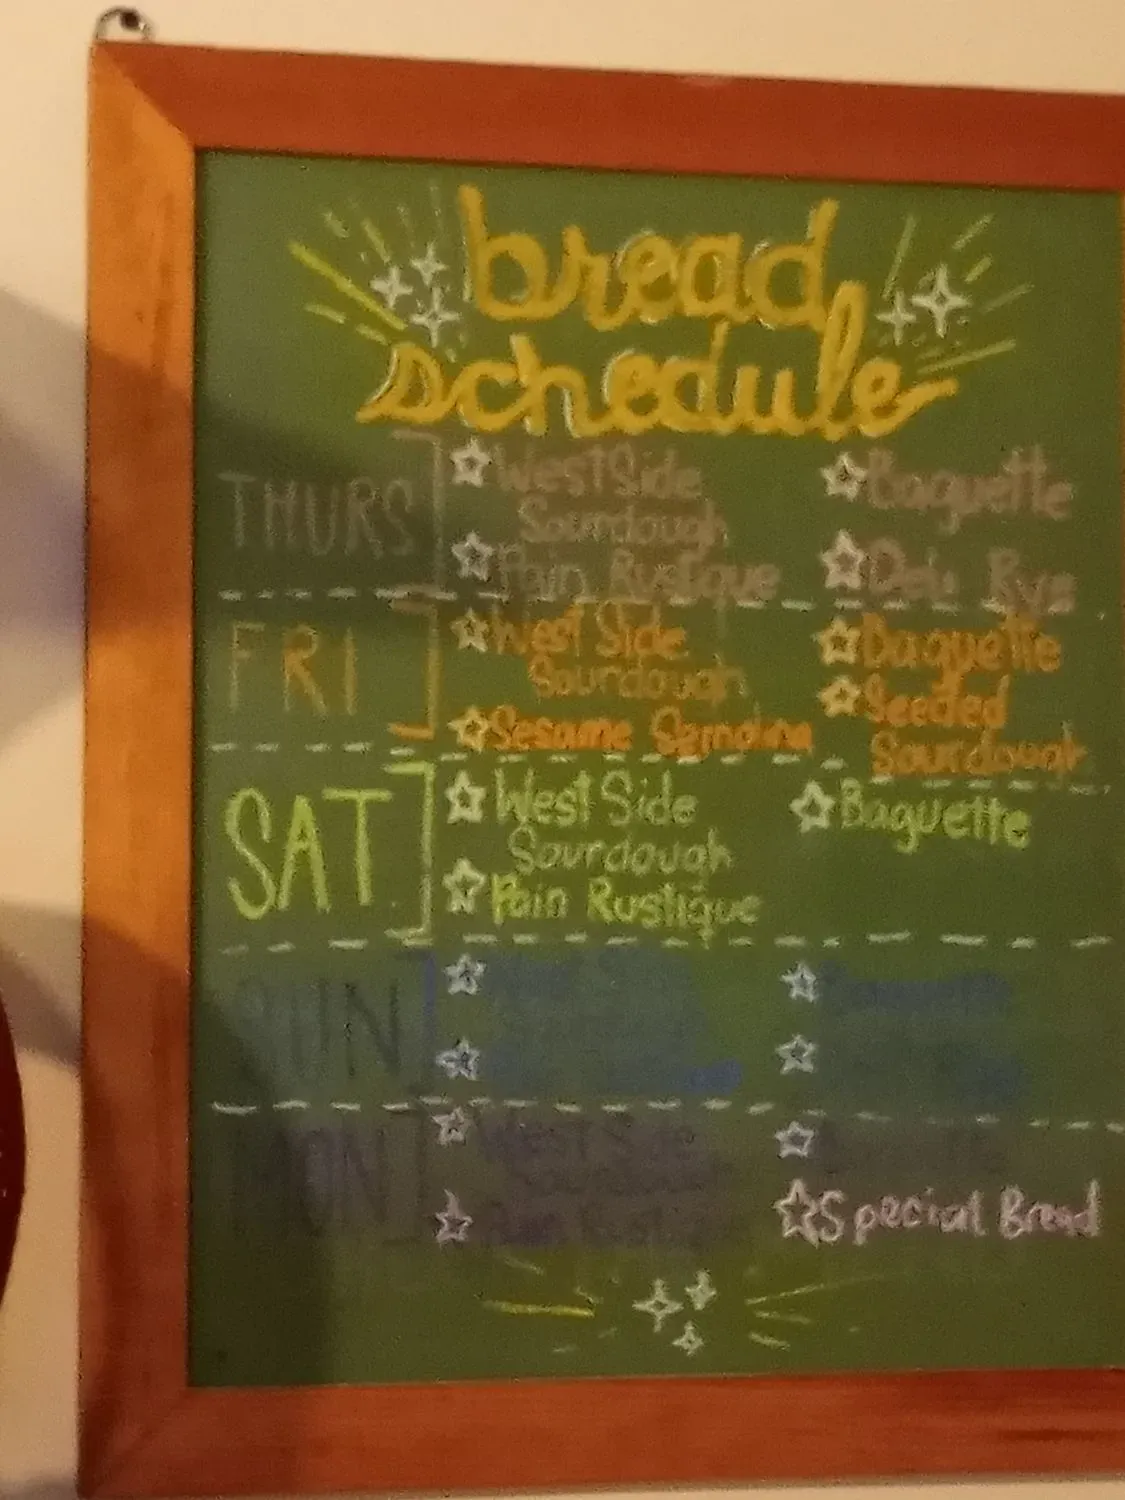 bread
schedule
THURS
West Side
Sourdough
Pain Rustique
Baguette
Deli Rye
FRI
West Side
Sourdough
Sesame Semolina
Baguette
Seeded
Sourdough
SAT
West Side
Sourdough
Pain Rustique
Baguette
SUN
Baguette
MON
West Side
Sourdough
Pain Rustique
Special Bread